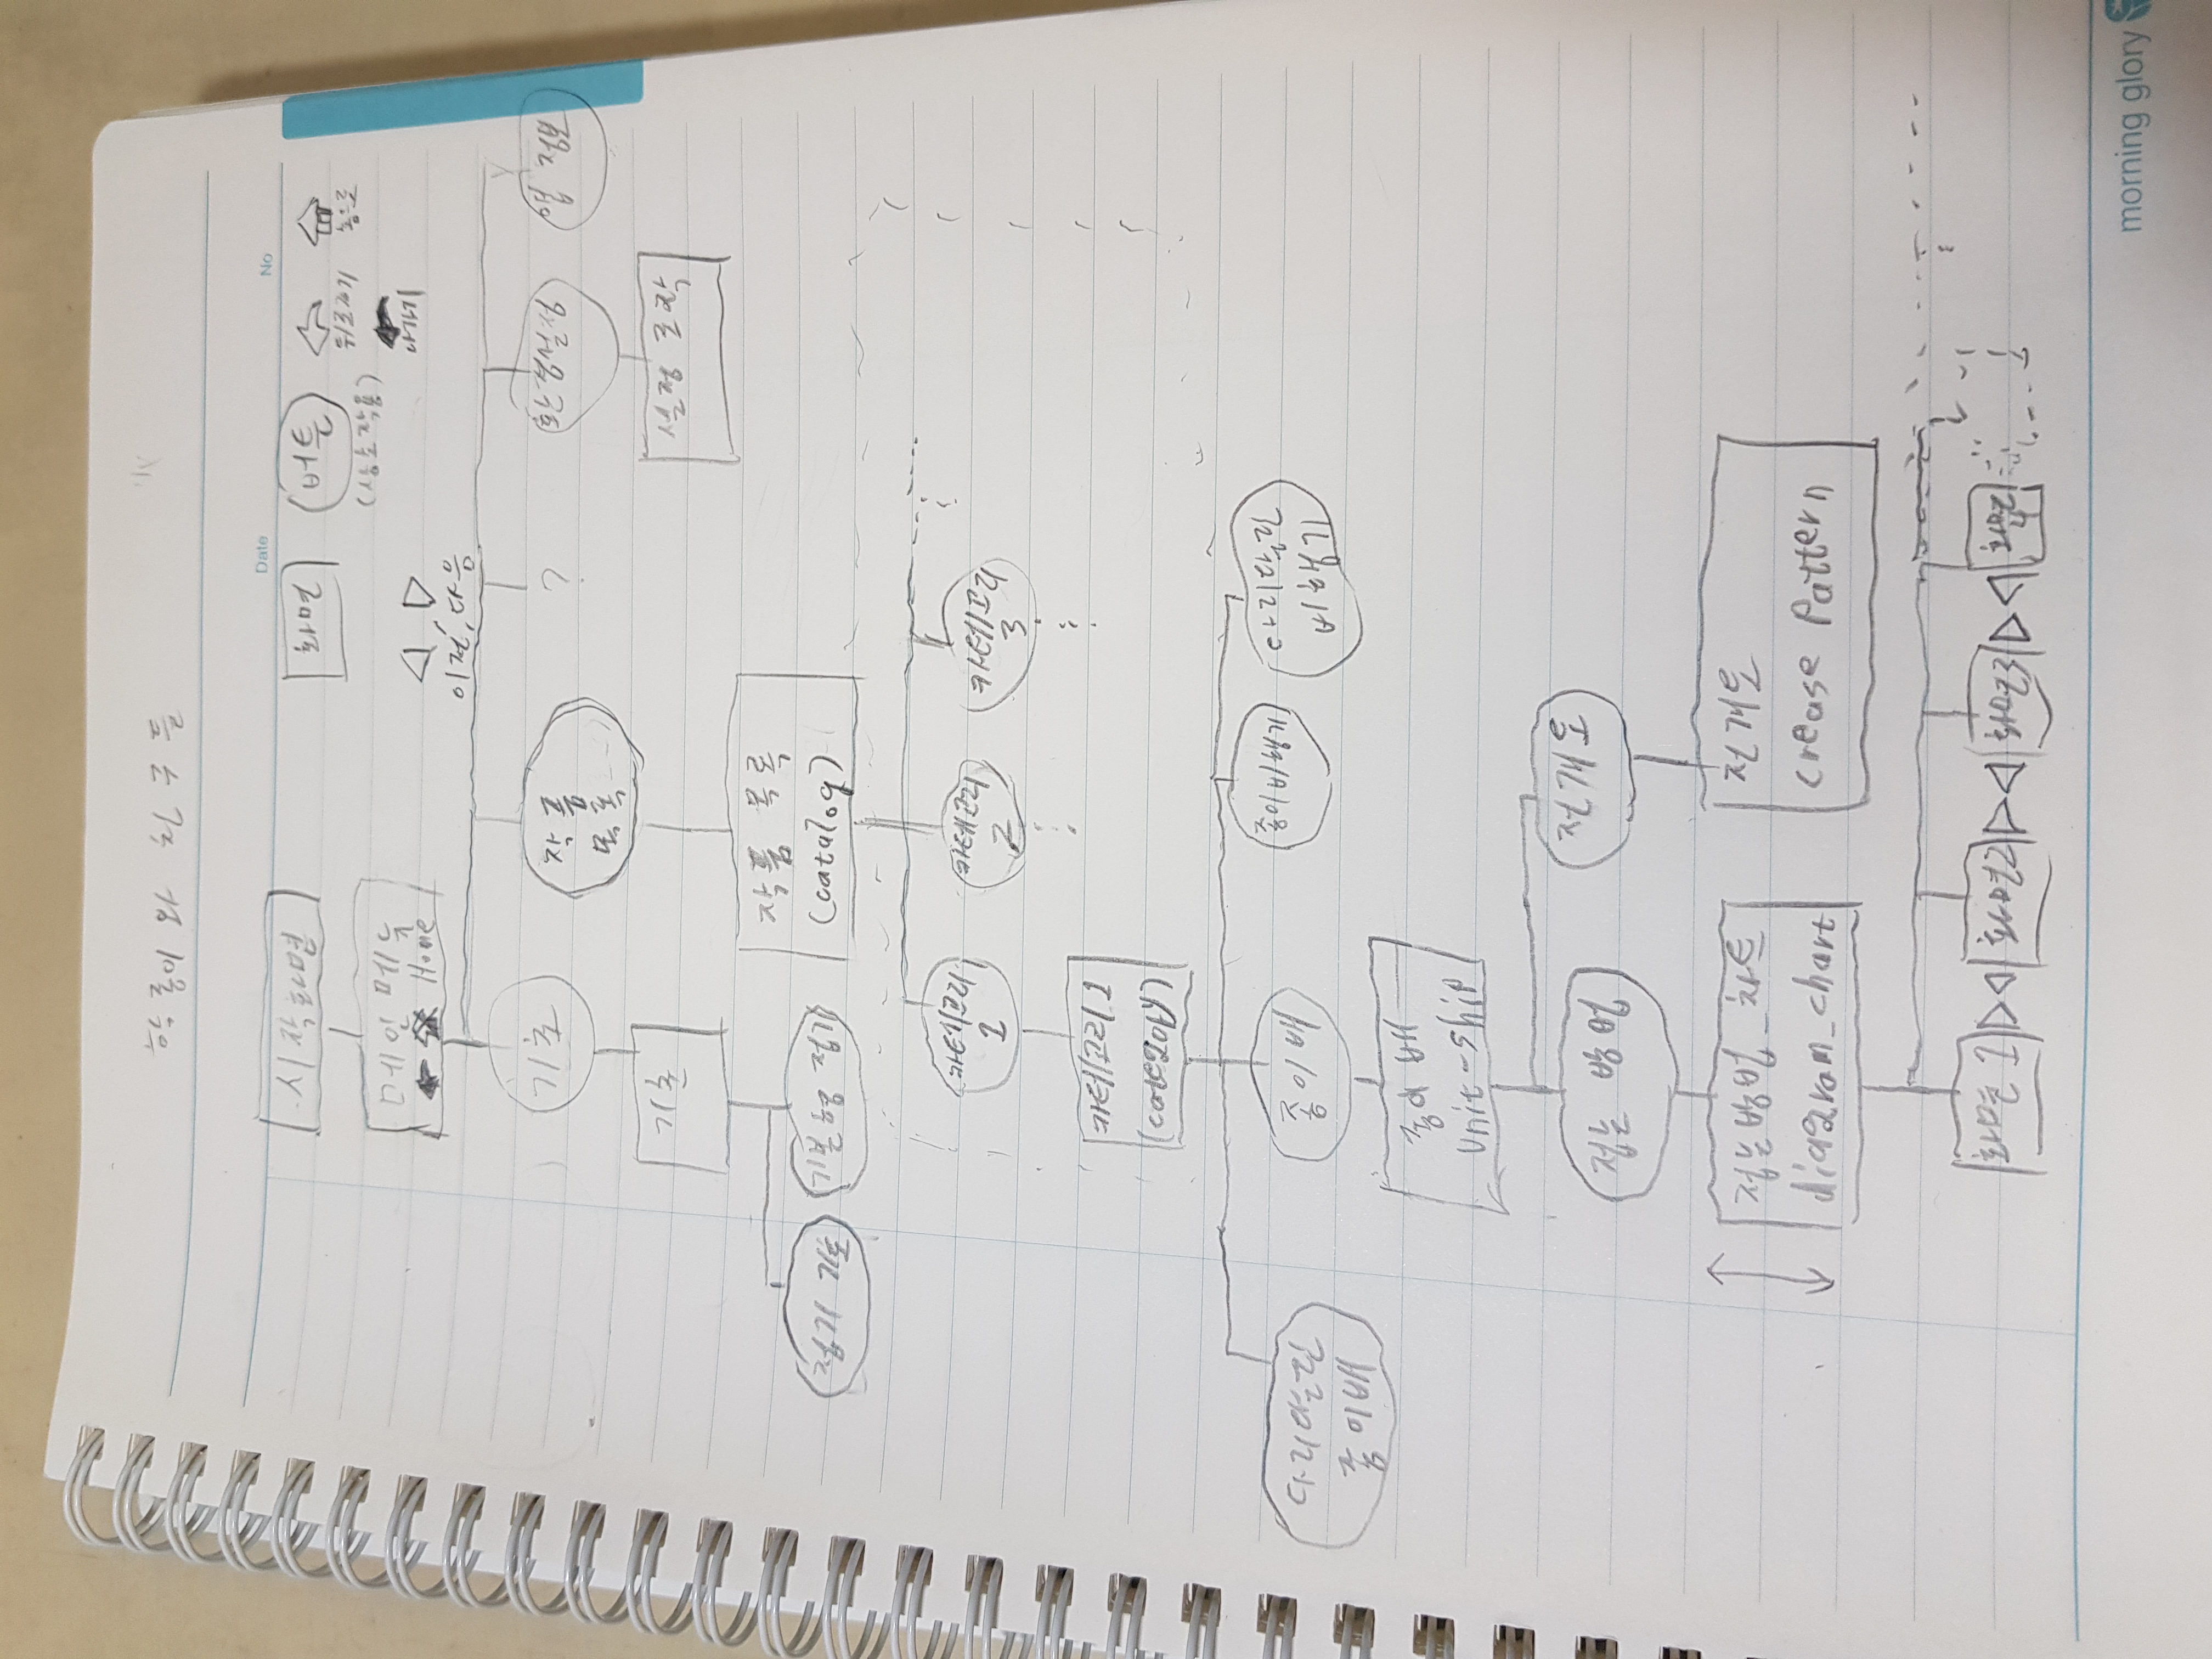 학종이와 친구들
Date
No
시작화면
화면
버튼
(상호작용)
뒤로가기
홈으로
나가기
메인 메뉴
Home
이전, 다음
기초
작품
목록
?
환경설정
앱 정보
기초
설정 조작
작품 목록
(catalog)
접기 기호
기본형 접기
카테고리
1
카테고리
2
카테고리
3
카테고리 1
(category)
다리달린
종이배
종이배
종이비행기
다리달린
비행기
종이배
unit-ship
접는 방법
전개도
접는방법_차트
diagram_chart
전개도
crease Pattern
화면 1
화면2
화면3
화면
4
morning glory